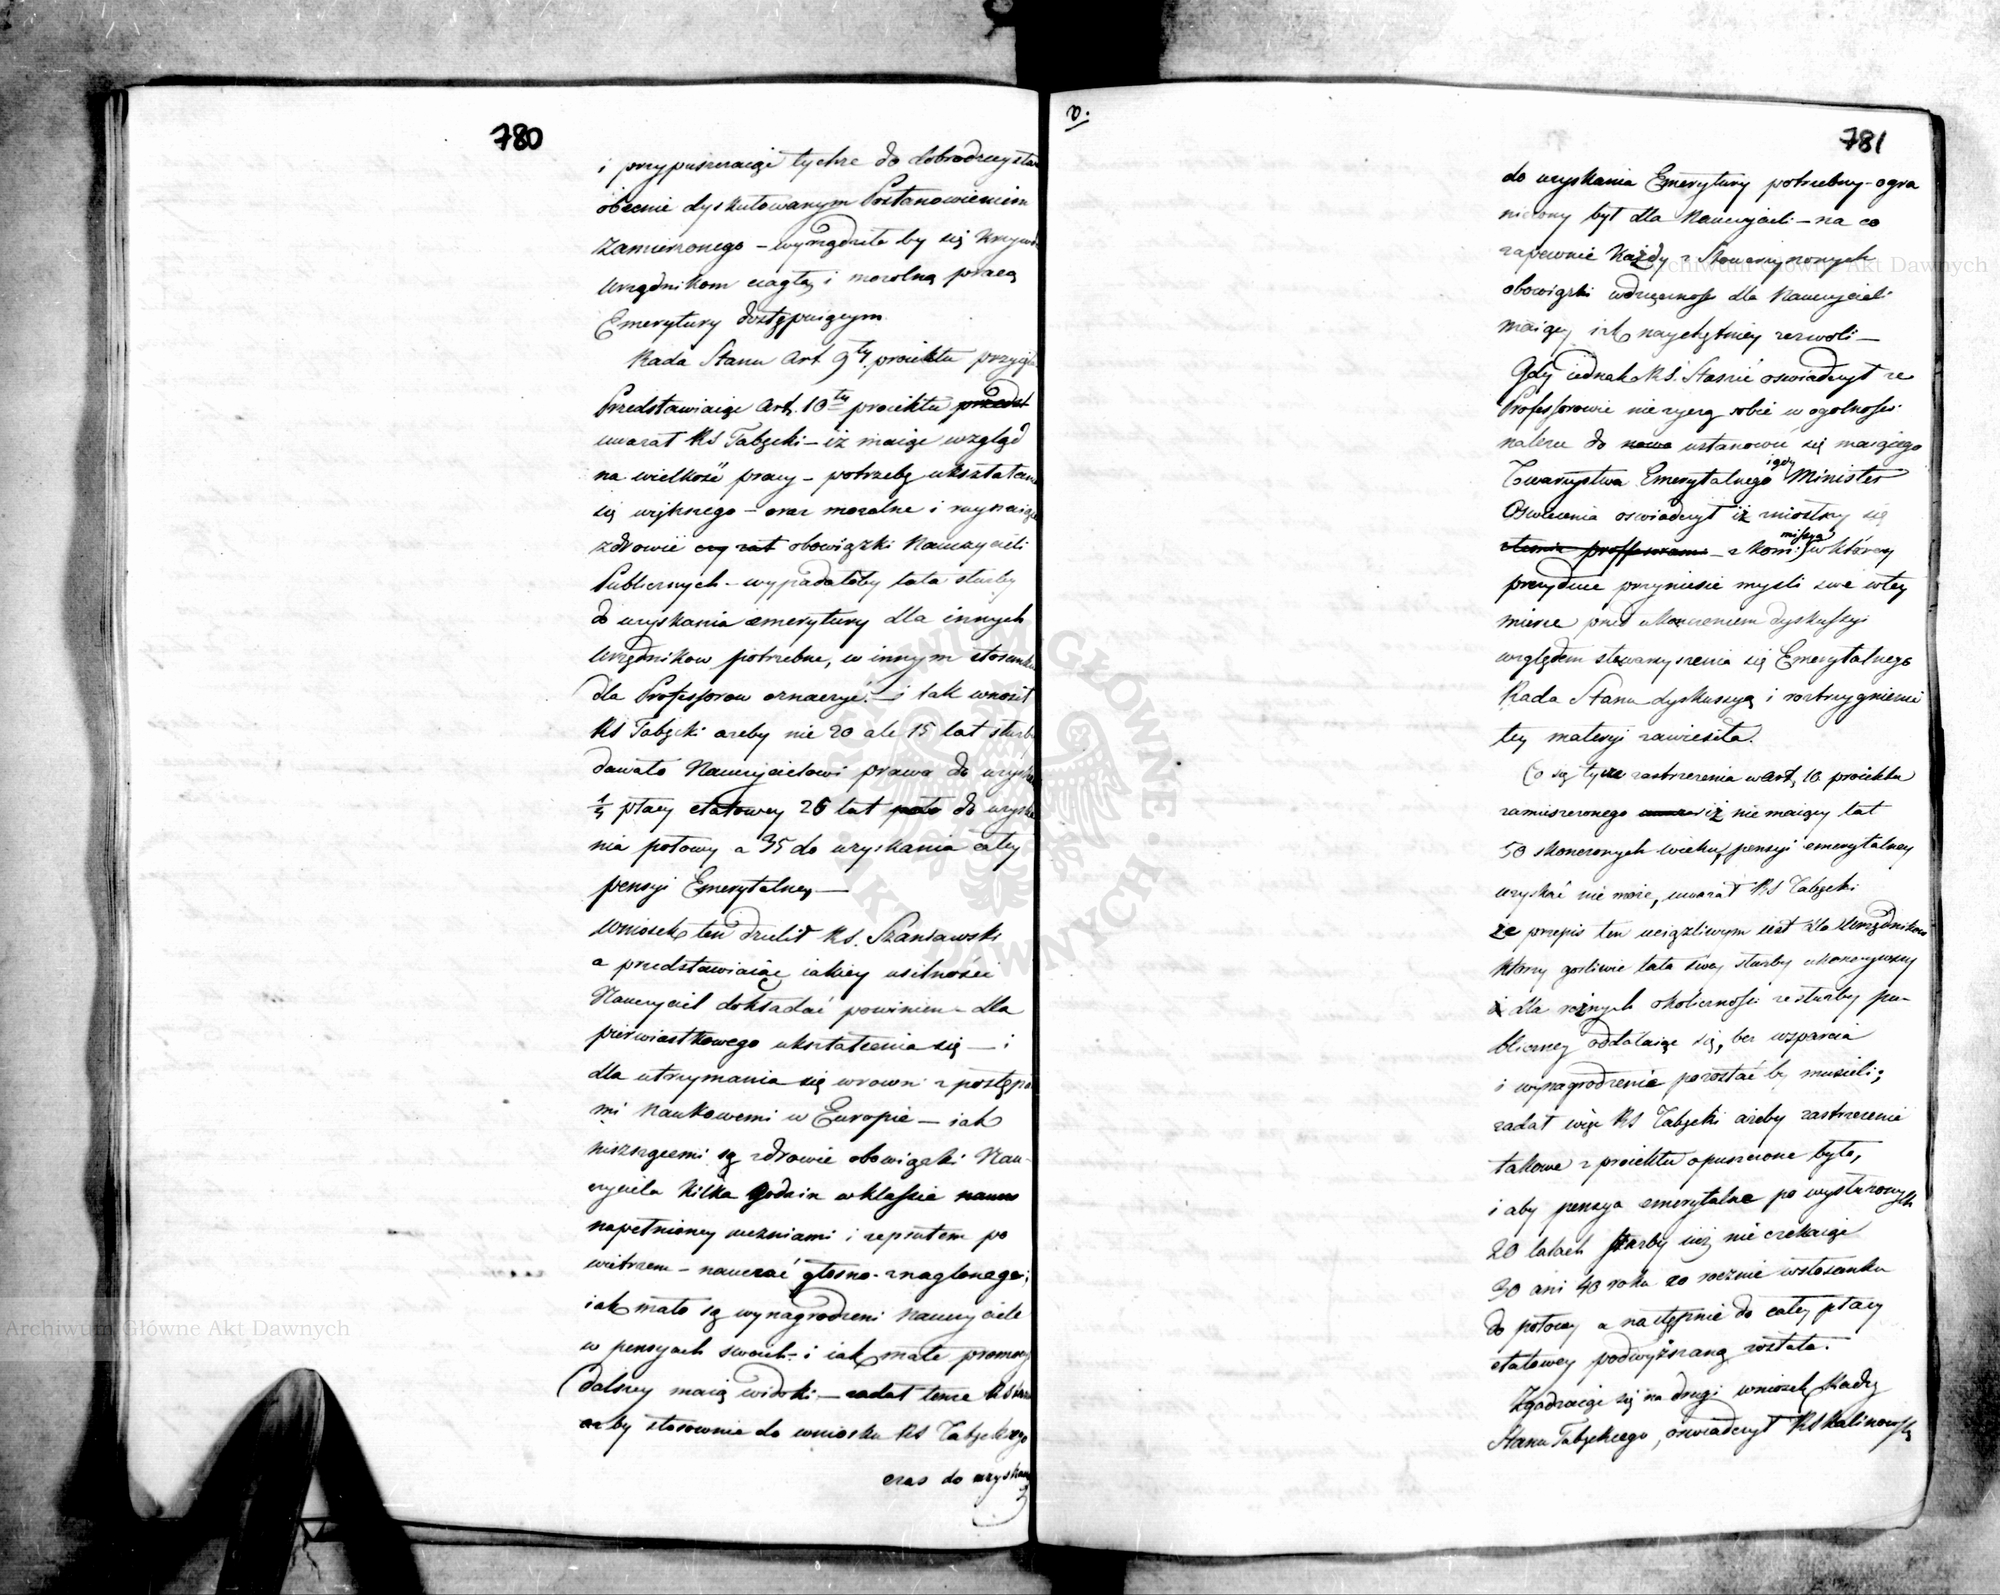 780
i przypuszczaiąc tychże do dobrodzieystw
obecnie dyskutowanym Postanowieniem
zamierzonego – wyrządziła by się krzywda
urzędnikom ciągłą i mozolną pracą
Emerytury dostępuiącym.
Rada Stanu Art 9ty proiektu przyięła
Przedstawiaiąc Art. 10ty proiektu przedst
uważał RS Tabęcki – iż maiąc wzgląd
na wielkość pracy – potrzebę ukształcenia
się wyższego – oraz moralne i
zdrowie obowiązki Nauczycieli
Publicznych – wypadałoby lata służby
do uzyskania emerytury dla innych
Urzędnikow potrzebne, w innym stosunku
dla Professorow oznaczyć. – i tak wnosił
RS Tabęcki ażeby nie 20 ale 15 lat służb
dawało Nauczycielowi prawo do uzyska
płacy etatowey 25 lat do uzyska
nia połowy a 35 do uzyskania całey
pensyi Emerytalney –
Wniosek ten dzielił RS. Szaniawski
a przedstawiaiąc iakiey usilności
Nauczyciel dokładać powinien – dla
pierwiastkowego ukształcenia się – i
dla utrzymania się wrowni z postępa
mi Naukowemi w Europie – iak
niszczącemi są zdrowie obowiązki Nau-
czyciela kilka godzin w klassie
napełnioney uczniami i zepsutem po
wietrzem – nauczać głośno –
iak mało są wynagrodzeni Nauczyciele
w pensyach swoich – i iak małe promocyi
dalszey maią widoki – żądał tenże RS
ażeby stosownie do wniosku RS Tabęckiego
czas do uzyskania
v.
781
do uzyskania Emerytury potrzebny – ogra
niczony był dla Nauczycieli – na co
zapewnie Każdy z Stowarzyszonych
obowiązki wdzięczności dla Nauczycieli
maiący ich naychętniey zezwoli –
Gdy iednak RS. Stasic oswiadczył że
Professorowie nie życzą sobie w ogolności
należeć do nowo ustanowić się maiącego
Towarzystwa Emerytalnego i gdy Minister
Oswiecenia oswiadczył iż zniosłszy się
ztemiż proffesorami – z Kommissyą w ktorey
prezyduie przyniesie mysli swe w tey
mierze przed ukończeniem dyskussyi
względem stowarzyszenia się Emerytalnego
Rada Stanu dyskussyą i roztrzygnienie
tey materyi zawiesiła.
Co się tycze zastrzeżenia w Art. 10 proiektu
zamieszczonego iż nie maiący lat
50 skończonych wieku, pensyi emerytalney
uzyskać nie może, uważał RS Tabęcki
że przepis ten uciążliwym iest dla Urzędnikow
ktorzy gorliwie lata swey służby ukończywszy
i dla rożnych okoliczności ze służby pu-
bliczney oddalaiąc się, bez wsparcia
i wynagrodzenia pozostać by musieli;
żądał więc RS Tabęcki ażeby zastrzeżenie
takowe z proiektu opuszczone było,
i aby pensya emerytalna po wysłużonych
20 latach służby iuż nie czekaiąc
30 ani 40 roku co rocznie w stosunku
do połowy a następnie do całey płacy
etatowey podwyższaną została.
Zgadzaiąc się na drugi wniosek Radcy
Stanu Tabęckiego, oswiadczył RS Kalinowski